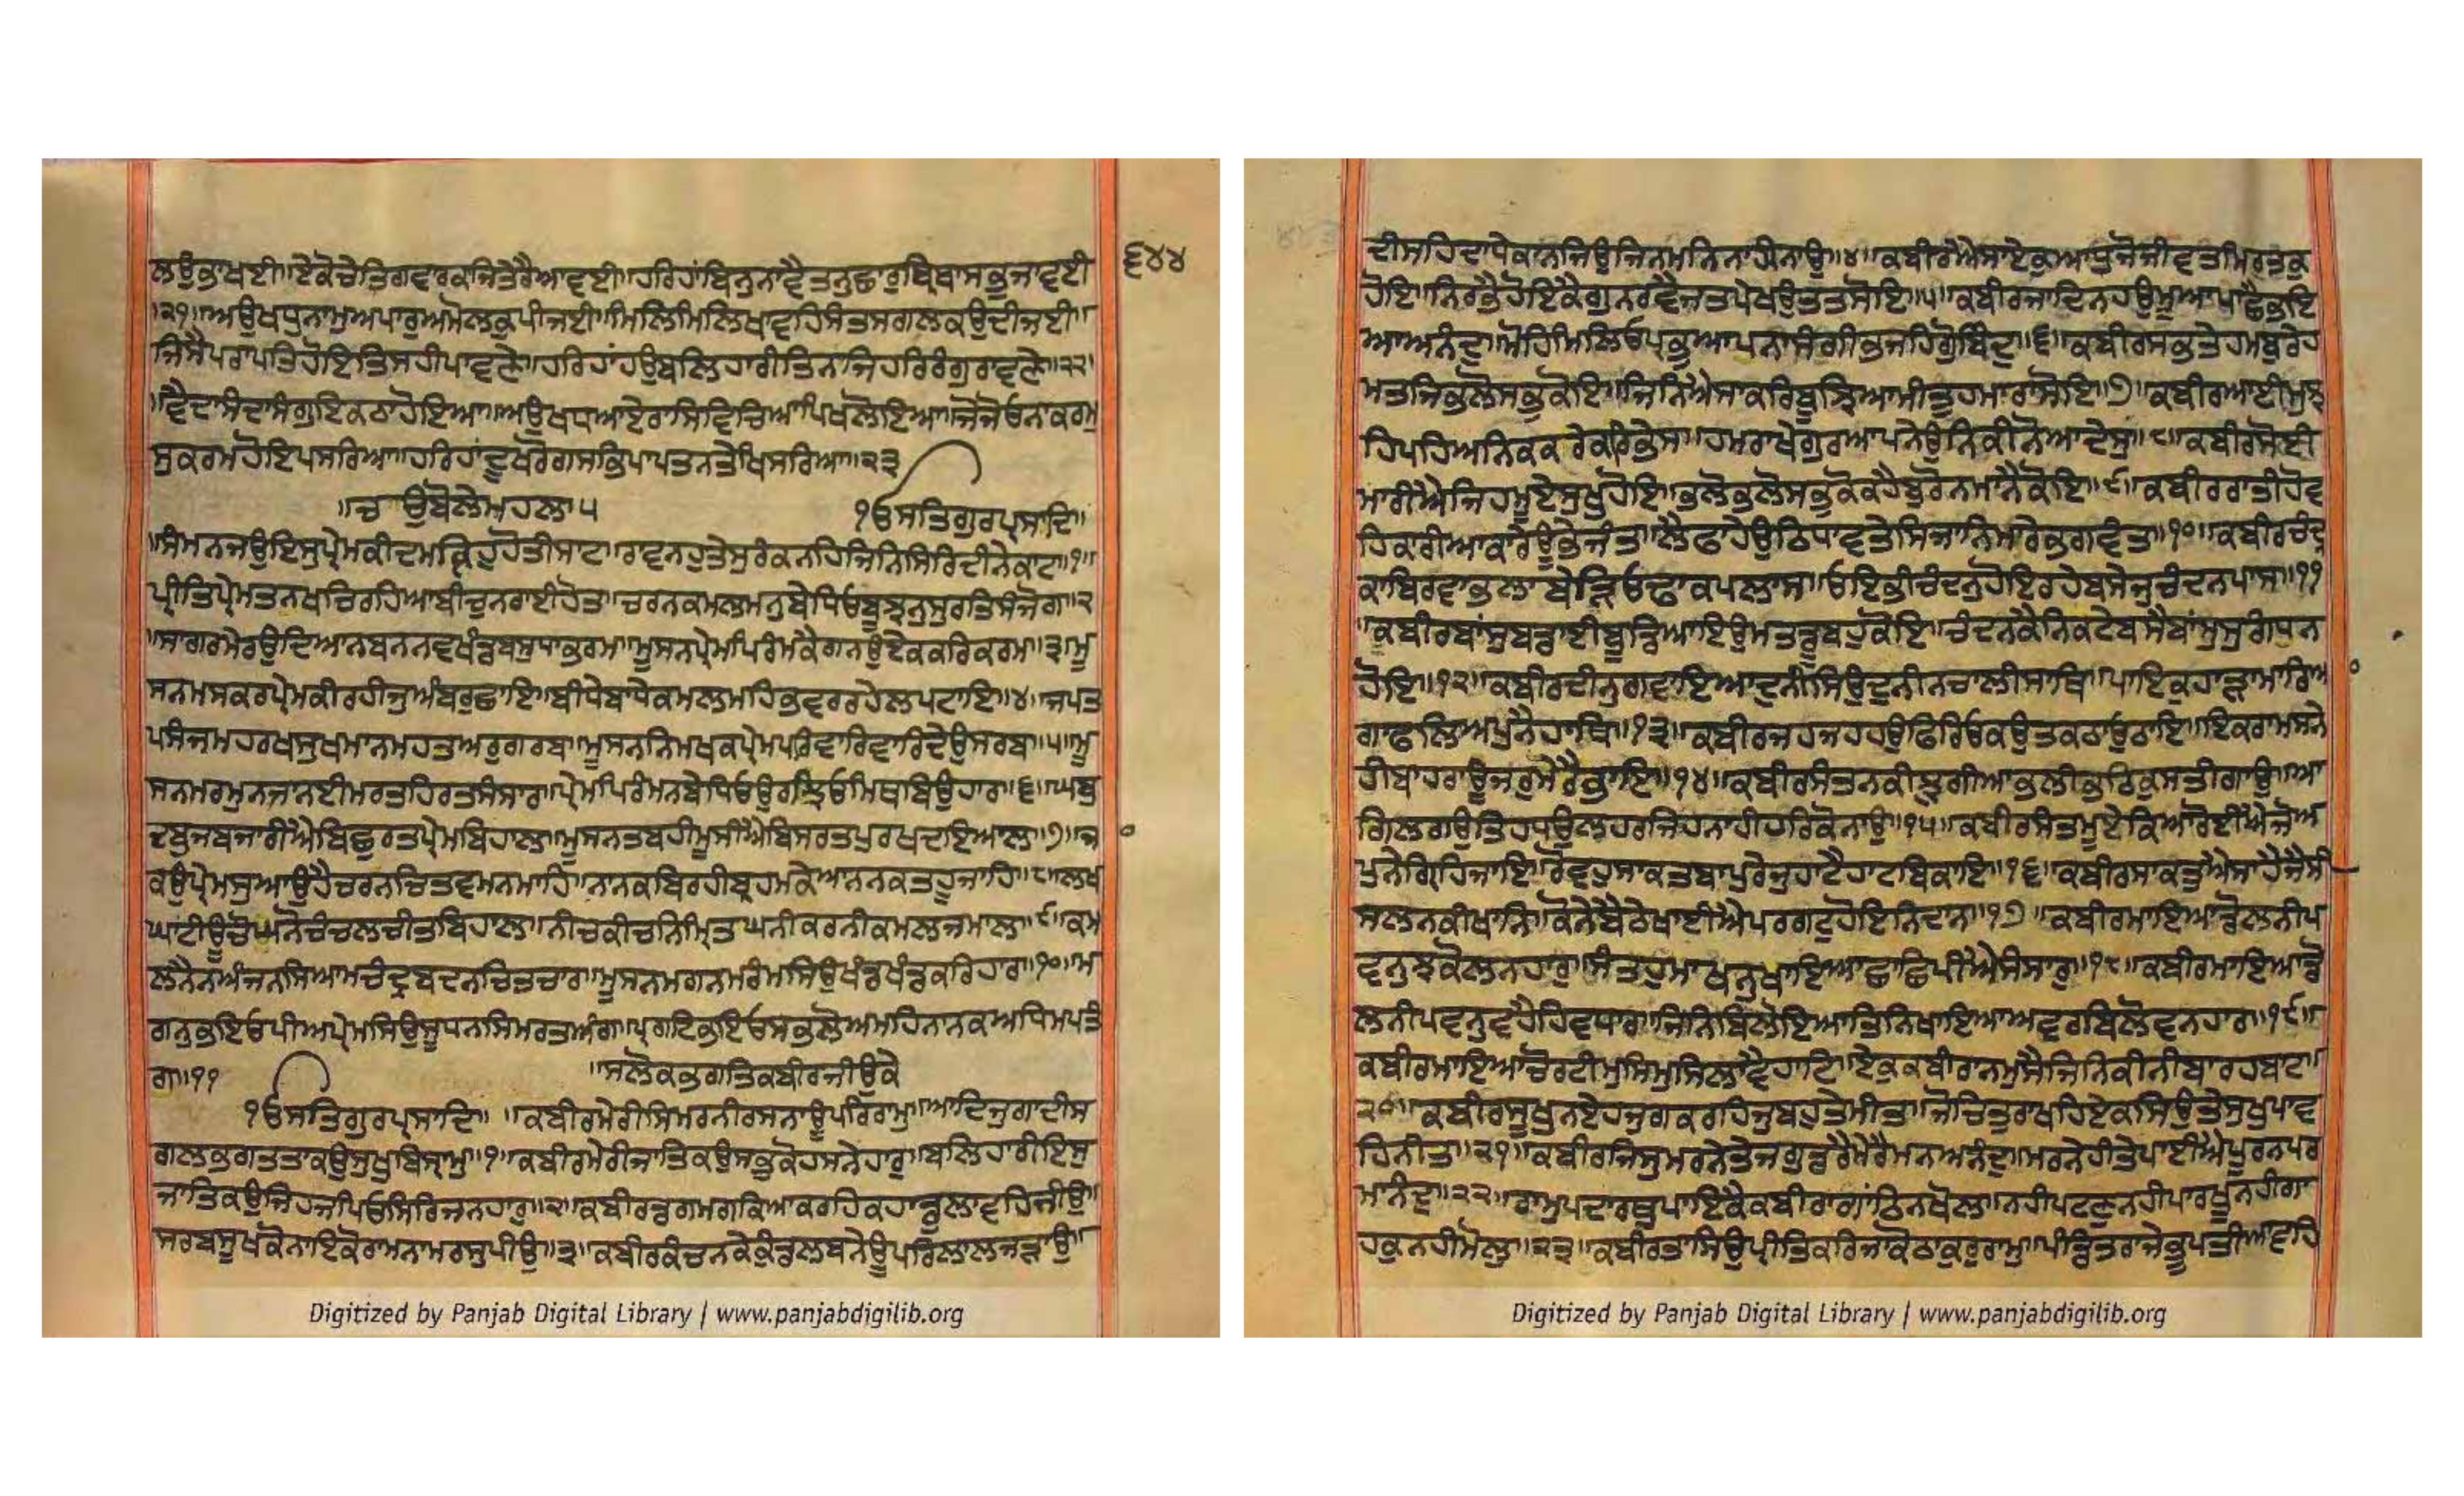 ਲਉਭਾਖਈ॥ਏਕੋਚੇਤਿਗਵਾਰਕਾਜਿਤੇਰੈਆਵਈ॥ਹਰਿਹਾਂਬਿਨੁਨਾਵੈਤਨੁਛਾਰੁਬਿਖਾਸਕੁਜਾਵਈ
॥੨੧॥ਅਉਖਧੁਨਾਮੁਅਪਾਰੁਅਮੋਲਕੁਪੀਜਈ॥ਮਿਲਿਮਿਲਿਖਾਵਹਿਸੰਤਸਗਲਕਉਦੀਜਈ॥
ਜਿਸੈਪਰਾਪਤਿਹੋਇਤਿਸਹੀਪਾਵਣੇ॥ਹਰਿਹਾਂਹਉਬਲਿਹਾਰੀਤਿਨਾਜਿਹਰਿਰੰਗੁਰਾਵਣੇ॥੨੨॥
॥ਵੈਦਾਸੰਦਾਸੰਗੁਇਕਠਾਹੋਇਆ॥ਅਉਖਧਆਏਰਾਸਿਵਿਚਿਆਪਿਖਲੋਇਆ॥ਜੋਜੋਓਨਾਕਰਮ
ਸੁਕਰਮਹੋਇਪਸਰਿਆ॥ਹਰਿਹਾਂਦੂਖਰੋਗਸਭਿਪਾਪਤਨਤੇਖਿਸਰਿਆ॥੨੩
॥ਚਉਬੋਲੇਮਹਲਾ੫ ੧ਓਸਤਿਗੁਰਪ੍ਰਸਾਦਿ॥
॥ਸੰਮਨਜਉਇਸੁਪ੍ਰੇਮਕੀਦਮਕ੍ਯਿਹੁਹੋਤੀਸਾਟ॥ਰਾਵਨਹੁਤੇਸੁਰੰਕਨਹਿਜਿਨਿਸਿਰਦੀਨੇਕਾਟ॥੧॥
ਪ੍ਰੀਤਿਪ੍ਰੇਮਤਨੁਖਚਿਰਹਿਆਬੀਚੁਨਰਾਈਹੋਤ॥ਚਰਨਕਮਲਮਨੁਬੇਧਿਓਬੂਝਨੁਸੁਰਤਿਸੰਜੋਗ॥੨
॥ਸਾਗਰਮੇਰਉਦਿਆਨਬਨਨਵਖੰਡਬਸੁਧਾਭਰਮ॥ਮੂਸਨਪ੍ਰੇਮਪਿਰੰਮਕੈਗਨਉਏਕਕਰਿਕਰਮ॥੩॥ਮੂ
ਸਨਮਸਕਰਪ੍ਰੇਮਕੀਰਹੀਜੁਅੰਬਰੁਛਾਇ॥ਬੀਧੇਬਾਂਧੇਕਮਲਮਹਿਭਵਰਰਹੇਲਪਟਾਇ॥੪॥ਜਪਤ
ਪਸੰਜਮਹਰਖਸੁਖਮਾਨਮਹਤਅਰੁਗਰਬ॥ਮੂਸਨਨਿਮਖਕਪ੍ਰੇਮਪਰਿਵਾਰਿਵਾਰਿਦੇਉਸਰਬ॥੫॥ਮੂ
ਸਨਮਰਮੁਨਜਾਨਈਮਰਤਹਿਰਤਸੰਸਾਰ॥ਪ੍ਰੇਮਪਿਰੰਮਨਬੇਧਿਓਉਰਝਿਓਮਿਥਬਿਉਹਾਰ॥੬॥ਘਬੁ
ਦਬੁਜਬਜਾਰੀਐਬਿਛੁਰਤਪ੍ਰੇਮਬਿਹਾਲ॥ਮੂਸਨਤਬਹੀਮੂਸੀਐਬਿਸਰਤਪੁਰਖਦਇਆਲ॥੭॥ਜਾ
ਕਉਪ੍ਰੇਮਸੁਆਉਹੈਚਰਨਚਿਤਵਮਨਮਾਹਿ॥ਨਾਨਕਬਿਰਹੀਬ੍ਰਹਮਕੇਆਨਨਕਤਹੂਜਾਹਿ॥੮॥ਲਖ
ਘਾਟੀਊਚੋਘਨੋਚੰਚਲਚੀਤਬਿਹਾਲ॥ਨੀਚਕੀਚਨਿੰਮ੍ਰਿਤਘਨੀਕਰਨੀਕਮਲਜਮਾਲ॥੯॥ਕਮ
ਲਨੈਨਅੰਜਨਸਿਆਮਚੰਦ੍ਰਬਦਨਚਿਤਚਾਰ॥ਮੂਸਨਮਗਨਮਰੰਮਸਿਉਖੰਡਖੰਡਕਰਿਹਾਰ॥੧੦॥ਮ
ਗਨੁਭਇਓਪੀਅਪ੍ਰੇਮਸਿਉਸੂਧਨਸਿਮਰਤਅੰਗ॥ਪ੍ਰਗਟਿਭਇਓਸਭਲੋਅਮਹਿਨਾਨਕਅਧਮਪਤੰ
ਗ॥੧੧ ॥ਸਲੋਕਭਗਤਿਕਬੀਰਜੀਉਕੇ
੧ਓਸਤਿਗੁਰਪ੍ਰਸਾਦਿ॥ ॥ਕਬੀਰਮੇਰੀਸਿਮਰਨੀਰਸਨਾਊਪਰਿਰਾਮੁ॥ਆਦਿਜੁਗਾਦੀਸ
ਗਲਭਗਤਤਾਕਉਸੁਖੁਬਿਸ੍ਰਾਮੁ॥੧॥ਕਬੀਰਮੇਰੀਜਾਤਿਕਉਸਭੁਕੋਹਸਨੇਹਾਰੁ॥ਬਲਿਹਾਰੀਇਸੁ
ਜਾਤਿਕਉਜਿਹਜਪਿਓਸਿਰਿਜਨਹਾਰੁ॥੨॥ਕਬੀਰਡਗਮਗਕਿਆਕਰਹਿਕਹਾਡੁਲਾਵਹਿਜੀਉ॥
ਸਰਬਸੂਖਕੋਨਾਇਕੋਰਾਮਨਾਮਰਸੁਪੀਉ॥੩॥ਕਬੀਰਕੰਚਨਕੇਕੁੰਡਲਬਨੇਊਪਰਿਲਾਲਜੜਾਉ॥
Digitized by Panjab Digital Library | www.panjabdigilib.org
੬੪੪
ਦੀਸਹਿਦਾਧੇਕਾਨਜਿਉਜਿਨਮਨਿਨਾਹੀਨਾਉ॥੪॥ਕਬੀਰਐਸਾਏਕੁਆਧੁਜੋਜੀਵਤਮਿਰਤਕ
ਹੋਇ॥ਨਿਰਭੈਹੋਇਕੈਗੁਨਰਵੈਜਤਪੇਖਉਤਤਸੋਇ॥੫॥ਕਬੀਰਜਾਦਿਨਹਉਮੂਆਪਾਛੈਭਇ
ਆਅਨੰਦੁ॥ਮੋਹਿਮਿਲਿਓਪ੍ਰਭੁਆਪਨਾਸੰਗੀਭਜਹਿਗੋਬਿੰਦੁ॥੬॥ਕਬੀਰਸਭਤੇਹਮਬੁਰੇਹ
ਮਤਜਿਭਲੋਸਭੁਕੋਇ॥ਜਿਨਿਐਸਾਕਰਿਬੂਝਿਆਮੀਤੁਹਮਾਰਾਸੋਇ॥੭॥ਕਬੀਰਆਈਮੁਝ
ਹਿਪਹਿਅਨਿਕਕਰੇਕਰਿਭੇਸ॥ਹਮਰਾਖੇਗੁਰਆਪਨੇਉਨਿਕੀਨੋਆਦੇਸੁ॥੮॥ਕਬੀਰਸੋਈ
ਮਾਰੀਐਜਿਹਮੂਏਸੁਖੁਹੋਇ॥ਭਲੋਭਲੋਸਭੁਕੋਕਹੈਬੁਰੋਨਮਾਨੈਕੋਇ॥੯॥ਕਬੀਰਰਾਤੀਹੋਵ
ਹਿਕਾਰੀਆਕਾਰੇਊਭੇਜੰਤ॥ਲੈਫਾਹੇਉਠਿਧਾਵਤੇਸਿਜਾਨਿਮਾਰੇਭਗਵੰਤ॥੧੦॥ਕਬੀਰਚੰਦ
ਕਾਬਿਰਵਾਭਲਾਬੇੜ੍ਹਿਓਢਾਕਪਲਾਸ॥ਓਇਭੀਚੰਦਨੁਹੋਇਰਹੇਬਸੇਜੁਚੰਦਨਪਾਸ॥੧੧
॥ਕਬੀਰਬਾਂਸੁਬਡਾਈਬੂਡਿਆਇਉਮਤਡੂਬਹੁਕੋਇ॥ਚੰਦਨਕੈਨਿਕਟੇਬਸੈਬਾਂਸੁਸੁਗੰਧਨ
ਹੋਇ॥੧੨॥ਕਬੀਰਦੀਨੁਗਵਾਇਆਦੁਨੀਸਿਉਦੁਨੀਨਚਾਲੀਸਾਥਿ॥ਪਾਇਕੁਹਾੜਾਮਾਰਿਆ
ਗਾਫਲਿਅਪੁਨੈਹਾਥਿ॥੧੩॥ਕਬੀਰਜਹਜਹਹਉਫਿਰਿਓਕਉਤਕਠਾਓਠਾਇ॥ਇਕਰਾਮਸਨੇ
ਹੀਬਾਹਰਾਊਜਰੁਮੇਰੈਭਾਇ॥੧੪॥ਕਬੀਰਸੰਤਨਕੀਝੁਗੀਆਭਲੀਭਠਿਕੁਸਤੀਗਾਉ॥ਆ
ਗਿਲਗਉਤਿਹਧਉਲਹਰਜਿਹਨਾਹੀਹਰਿਕੋਨਾਉ॥੧੫॥ਕਬੀਰਸੰਤਮੂਏਕਿਆਰੋਈਐਜੋਅ
ਪੁਨੇਗ੍ਰਿਹਿਜਾਇ॥ਰੋਵਹੁਸਾਕਤਬਾਪੁਰੇਜੁਹਾਟੈਹਾਟਬਿਕਾਇ॥੧੬॥ਕਬੀਰਸਾਕਤੁਐਸਾਹੈਜੈਸੀ
ਸਲਨਕੀਖਾਨਿ॥ਕੋਨੇਬੈਠੇਖਾਈਐਪਰਗਟੁਹੋਇਨਿਦਾਨ॥੧੭॥ਕਬੀਰਮਾਇਆਡੋਲਨੀਪ
ਵਨੁਝਕੋਲਨਹਾਰੁ॥ਸੰਤਹੁਮਾਖਨੁਖਾਇਆਛਾਛਿਪੀਐਸੰਸਾਰੁ॥੧੮॥ਕਬੀਰਮਾਇਆਡੋ
ਲਨੀਪਵਨੁਵਹੈਹਿਵਧਾਰ॥ਜਿਨਿਬਿਲੋਇਆਤਿਨਿਖਾਇਆਅਵਰਬਿਲੋਵਨਹਾਰ॥੧੯॥
ਕਬੀਰਮਾਇਆਚੋਰਟੀਮੁਸਿਮੁਸਿਲਾਵੈਹਾਟਿ॥ਏਕੁਕਬੀਰਾਨਮੁਸੈਜਿਨਿਕੀਨੀਬਾਰਹਬਾਟ॥
੨੦॥ਕਬੀਰਸੂਖੁਨਏਹਜੁਗਕਰਹਿਜੁਬਹੁਤੇਮੀਤ॥ਜੋਚਿਤੁਰਾਖਹਿਏਕਸਿਉਤੇਸੁਖੁਪਾਵ
ਹਿਨੀਤ॥੨੧॥ਕਬੀਰਜਿਸੁਮਰਨੇਤੇਜਗੁਡਰੈਮੇਰੈਮਨਅਨੰਦੁ॥ਮਰਨੇਹੀਤੇਪਾਈਐਪੂਰਨਪਰ
ਮਾਨੰਦੁ॥੨੨॥ਰਾਮੁਪਦਾਰਥੁਪਾਇਕੈਕਬੀਰਾਗਾਂਠਿਨਖੋਲ॥ਨਹੀਪਟਣੁਨਹੀਪਾਰਖੂਨਹੀਗਾ
ਹਕੁਨਹੀਮੋਲੁ॥੨੩॥ਕਬੀਰਤਾਸਿਉਪ੍ਰੀਤਿਕਰਿਜਾਕੋਠਾਕੁਰੁਰਾਮੁ॥ਪੰਡਿਤਰਾਜੇਭੂਪਤੀਆਵਹਿ
Digitized by Panjab Digital Library | www.panjabdigilib.org